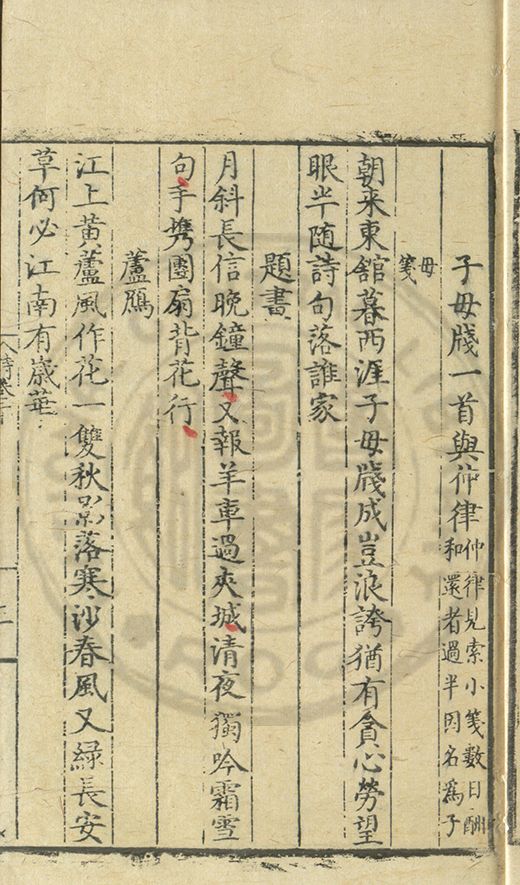 子母牋一首與仲律仲律見索小箋數日酬和還者過半因名為子
母箋
朝来東舘暮西涯子母牋成豈浪誇猶有貪心勞望
眼半随詩句落誰家
題畫
月斜長信晚鐘聲又報羊車過夾城清夜獨吟霜雪
句手携團扇背花行
蘆鴈
江上黄蘆風作花一雙秋影落寒沙春風又綠長安
草何必江南有歳華